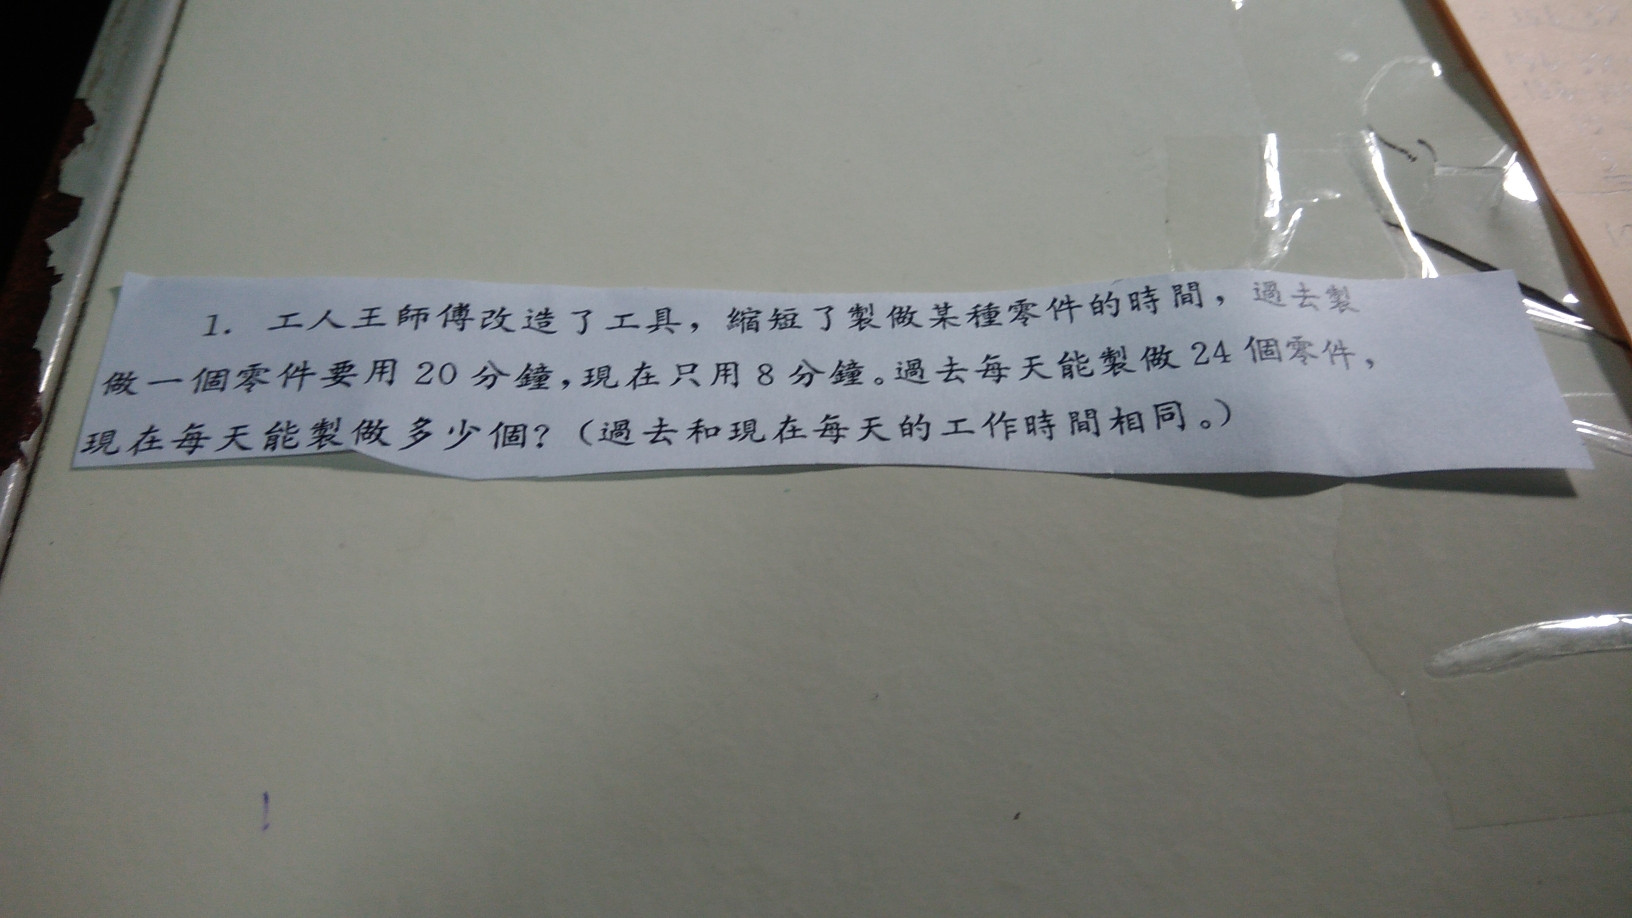 1. 工人王師傅改造了工具，縮短了製做某種零件的時間，過去製
做一個零件要用 20 分鐘，現在只用 8 分鐘。過去每天能製做 24 個零件，
現在每天能製做多少個？（過去和現在每天的工作時間相同。）